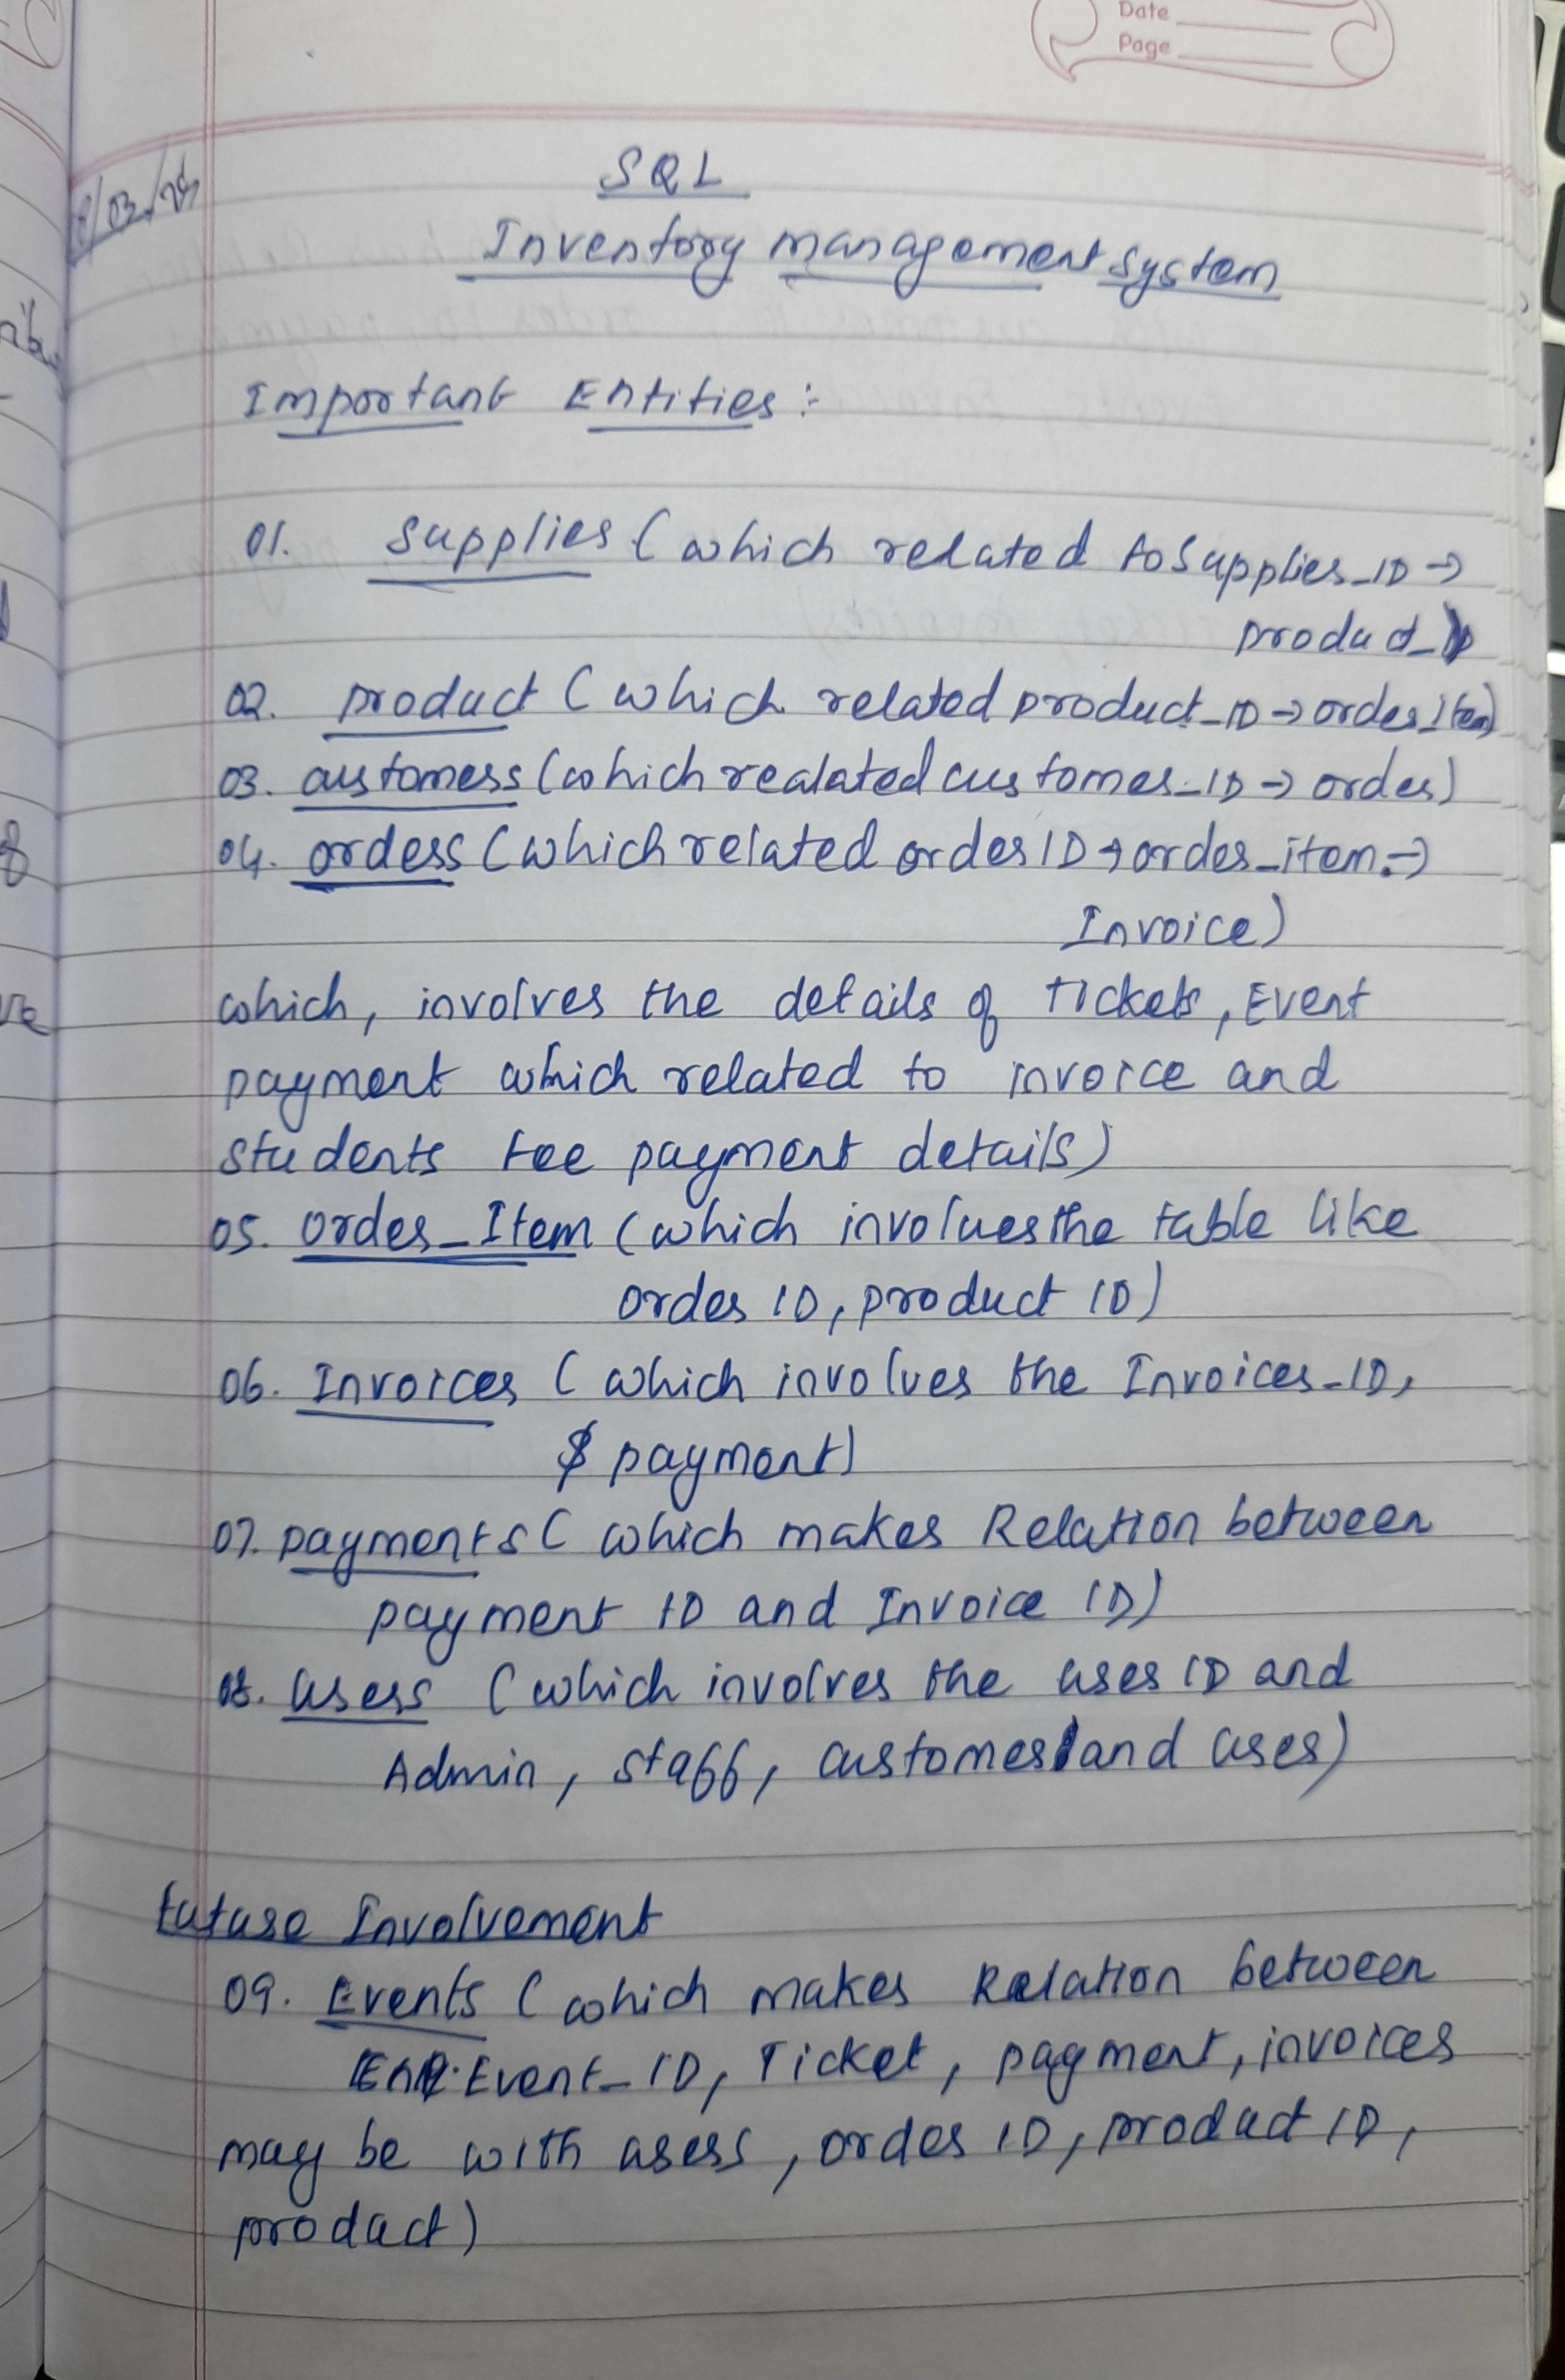 Date
Page
/03/25
SQL
Inventory management System
Important Entities :-
01. Supplier (which related to Supplier_ID →
product_ID
02. product (which related product_ID → order_item)
03. customers (which realated customer_ID → order)
04. orders (which related order ID → order_item. →
Invoice)
which, involves the details of Tickets, Event
payment which related to invoice and
students fee payment details)
05. order_Item (which involves the table like
order ID, product ID)
06. Invoices (which involves the Invoices_ID,
$ payment)
07. payments (which makes Relation between
payment ID and Invoice ID)
08. users (which involves the user ID and
Admin, staff, customer and user)
future Involvement
09. Events (which makes Relation between
Event_ID, Ticket, payment, invoices
may be with users, order ID, product ID,
product)